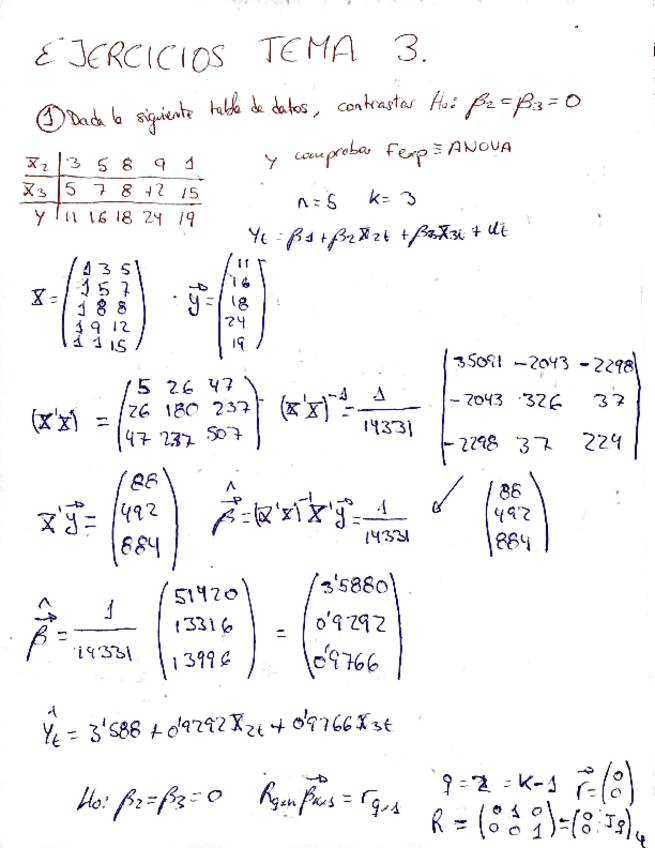 EJERCICIOS TEMA 3.
① Dada la siguiente tabla de datos, contrastar H₀: β₂ = β₃ = 0
y comprobar Fexp ≡ ANOVA
X₂ | 3 5 8 9 1
X₃ | 5 7 8 12 15
Y | 11 16 18 24 19
n = 5 k = 3
Yt = β1 + β2X2t + β3X3t + Ut
X = (1 3 5; 1 5 7; 1 8 8; 1 9 12; 1 1 15) · y⃗ = (11; 16; 18; 24; 19)
(X'X) = (5 26 47; 26 180 237; 47 237 507) (X'X)⁻¹ = 1/14331 |35091 -2043 -2298; -2043 326 37; -2298 37 224|
X'y⃗ = (88; 492; 884) β̂ = (X'X)⁻¹X'y⃗ = 1/14331 (88; 492; 884)
β̂ = 1/14331 (51420; 13316; 13996) = (3'5880; 0'9292; 0'9766)
Ŷt = 3'588 + 0'9292X2t + 0'9766X3t
H₀: β₂ = β₃ = 0 Rqxk β⃗kx1 = rqx1 q = 2 = k-1 r⃗ = (0; 0)
R = (0 1 0; 0 0 1) = (0⃗ : Iq)